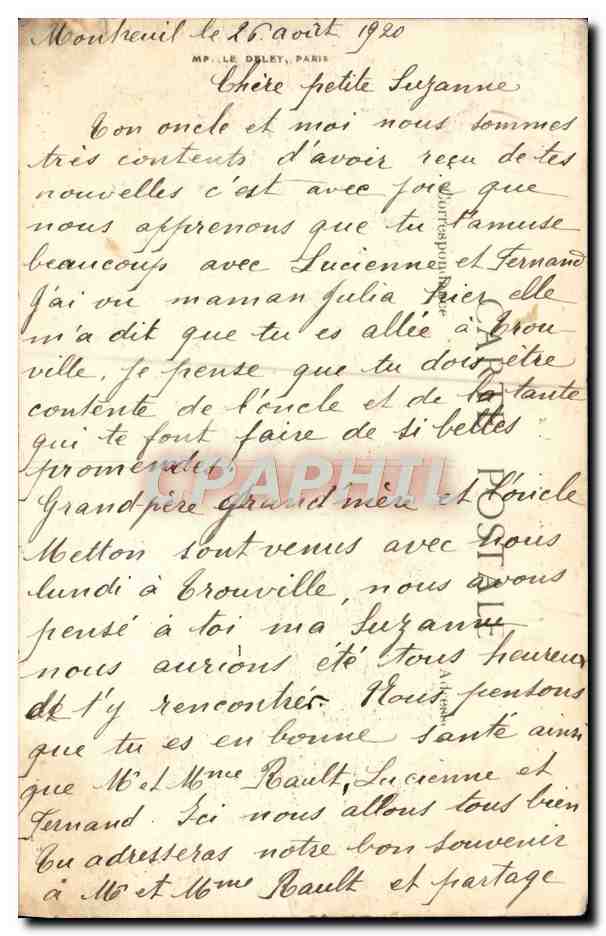 Montreuil le 26 août 1920
IMP. LE DELEY, PARIS
Chère petite Suzanne
Ton oncle et moi nous sommes
très contents d'avoir reçu de tes
nouvelles c'est avec joie que
nous apprenons que tu t'amuse
beaucoup avec Lucienne et Fernand
J'ai vu maman Julia hier elle
m'a dit que tu es allée à Trou-
ville, je pense que tu dois être
contente de l'oncle et de la tante
qui te font faire de si belles
promenades.
Grand-père Grand'mère et l'oncle
Metton sont venus avec nous
lundi à Trouville, nous avons
pensé à toi ma Suzanne
nous aurions été tous heureux
de t'y rencontrér. Nous pensons
que tu es en bonne santé ainsi
que Mr et Mme Rault, Lucienne et
Fernand. Ici nous allons tous bien
Tu adresseras notre bon souvenir
à Mr et Mme Rault et partage
CARTE POSTALE
Correspondance
Adresse
CPAPHIL